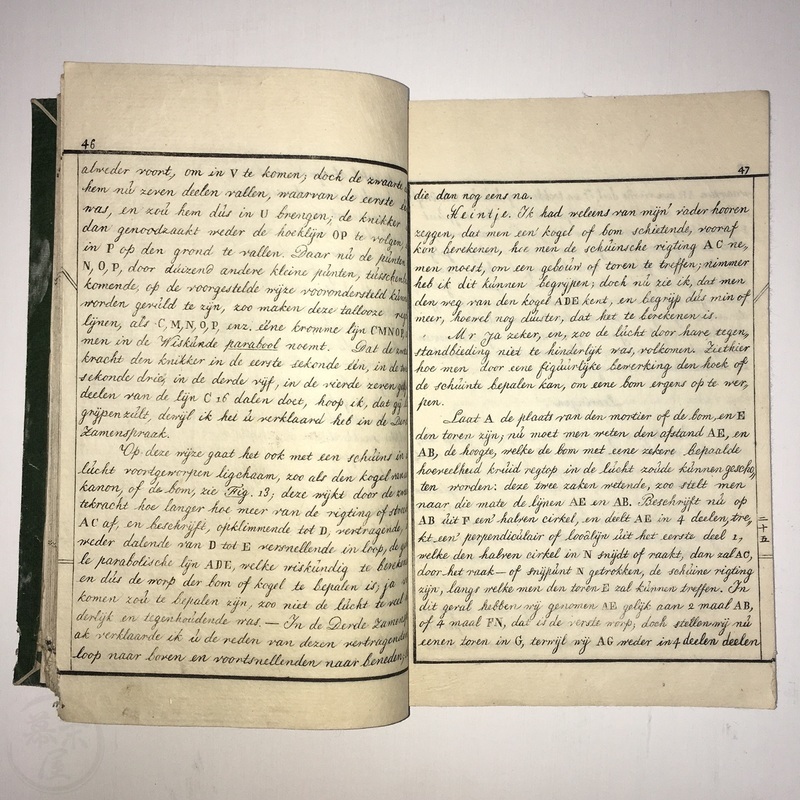 46
alweder voort, om in V te komen; doch de zwaarte
hem nú zeven deelen vallen, waarvan de eerste
was, en zoú hem dús in U brengen; de knikker
dan genoodzaakt weder de hoeklijn OP te volgen,
in P op den grond te vallen. Daar nú de púnten
N, O, P, door dúizend andere kleine púnten, tússchen
komende, op de voorgestelde wijze voorondersteld
worden gevúld te zijn, zoo maken deze tallooze
lijnen, als C, M, N, O, P, enz. eene kromme lijn CMNOP,
men in de Wiskúnde parabool noemt. Dat de
kracht den knikker in de eerste sekonde één, in de
sekonde drie, in de derde vijf, in de vierde zeven
deelen van de lijn C 16 dalen doet, hoop ik, dat gij
grijpen zúlt, dewijl ik het ú verklaard heb in de
Zamenspraak.
Op deze wijze gaat het ook met een schúins in
lúcht voortgeworpen ligchaam, zoo als den kogel van
kanon, of de bom, zie Fig. 13; deze wijkt door de
tekracht hoe langer hoe meer van de rigting of
AC af, en beschrijft, opklimmende tot D, vertragende,
weder dalende van D tot E versnellende in loop, de
le parabolische lijn ADE, welke wiskúndig te
en dús de worp der bom of kogel te bepalen is; ja
komen zoú te bepalen zijn, zoo niet de lúcht te veel
derlijk en tegenhoudende was. — In de Derde
ak verklaarde ik ú de reden van dezen vertragende
loop naar boven en voortsnellenden naar beneden;
47
die dan nog eens na.
Heintje. Ik had weleens van mijn' vader hooren
zeggen, dat men een' kogel of bom schietende, vooraf
kon berekenen, hoe men de schúinsche rigting AC ne,
men moest, om een geboúw of toren te treffen; nimmer
heb ik dit kúnnen begrijpen; doch nú zie ik, dat men
den weg van den kogel ADE kent, en begrijp dús min of
meer, hoewel nog dúister, dat het te berekenen is.
Mr Ja zeker, en, zoo de lúcht door hare tegen,
standbieding niet te hinderlijk was, volkomen. Ziethier
hoe men door eene figúúrlijke bewerking den hoek of
de schúinte bepalen kan, om eene bom ergens op te wer,
pen.
Laat A de plaats van den mortier of de bom, en E
den toren zijn; nú moet men weten den afstand AE, en
AB, de hoogte, welke de bom met eene zekere bepaalde
hoeveelheid krúid regtop in de lúcht zoúde kúnnen gescho,
ten worden: deze twee zaken wetende, zoo stelt men
naar die mate de lijnen AE en AB. Beschrijft nú op
AB úit P een' halven cirkel, en deelt AE in 4 deelen, tre,
kt een' perpendicúlair of loodlijn úit het eerste deel 1,
welke den halven cirkel in N snijdt of raakt, dan zal AC,
door het raak — of snijpúnt N getrokken, de schúine rigting
zijn, langs welke men den toren E zal kúnnen treffen. In
dit geval hebben wij genomen AE gelijk aan 2 maal AB,
of 4 maal PN, dat is de verste worp; doch stellen wij nú
eenen toren in G, terwijl wij AG weder in 4 deelen deelen
二十五